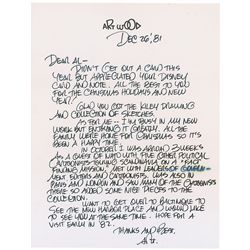 ART WOOD
DEC 26, '81
DEAR AL-
DIDN'T GET OUT A CARD THIS
YEAR BUT APPRECIATED YOUR DISNEY
CARD AND NOTE. ALL THE BEST TO YOU
FOR THE CHRISTMAS HOLIDAYS AND NEW
YEAR!
GLAD YOU GOT THE KLEY DRAWING
AND COLLECTION OF SKETCHES.
AS FOR ME - I'M BUSY IN MY NEW
WORK BUT ENJOYING IT GREATLY. ALL THE
FAMILY WERE HOME FOR CHRISTMAS SO IT'S
BEEN A HAPPY TIME.
IN OCTOBER I WAS ABROAD 3 WEEKS
AS A GUEST OF NATO WITH FIVE OTHER POLITICAL
CARTOONISTS DURING SCANDINAVIA ON A "FACT
FINDING MISSION." MET WITH LEADERS OF
EDITORS AND CARTOONISTS. WAS ALSO IN
PARIS AND LONDON AND SAW MANY OF THE CARTOONISTS
THERE SO ADDED SOME NICE PIECES TO THE
COLLECTION.
WANT TO GET OVER TO BALTIMORE TO
SEE THE NEW HARBOR PLACE AND WOULD LIKE
TO SEE YOU AT THE SAME TIME. HOPE FOR A
VISIT EARLY IN '82.
THANKS AND BEST,
Art.